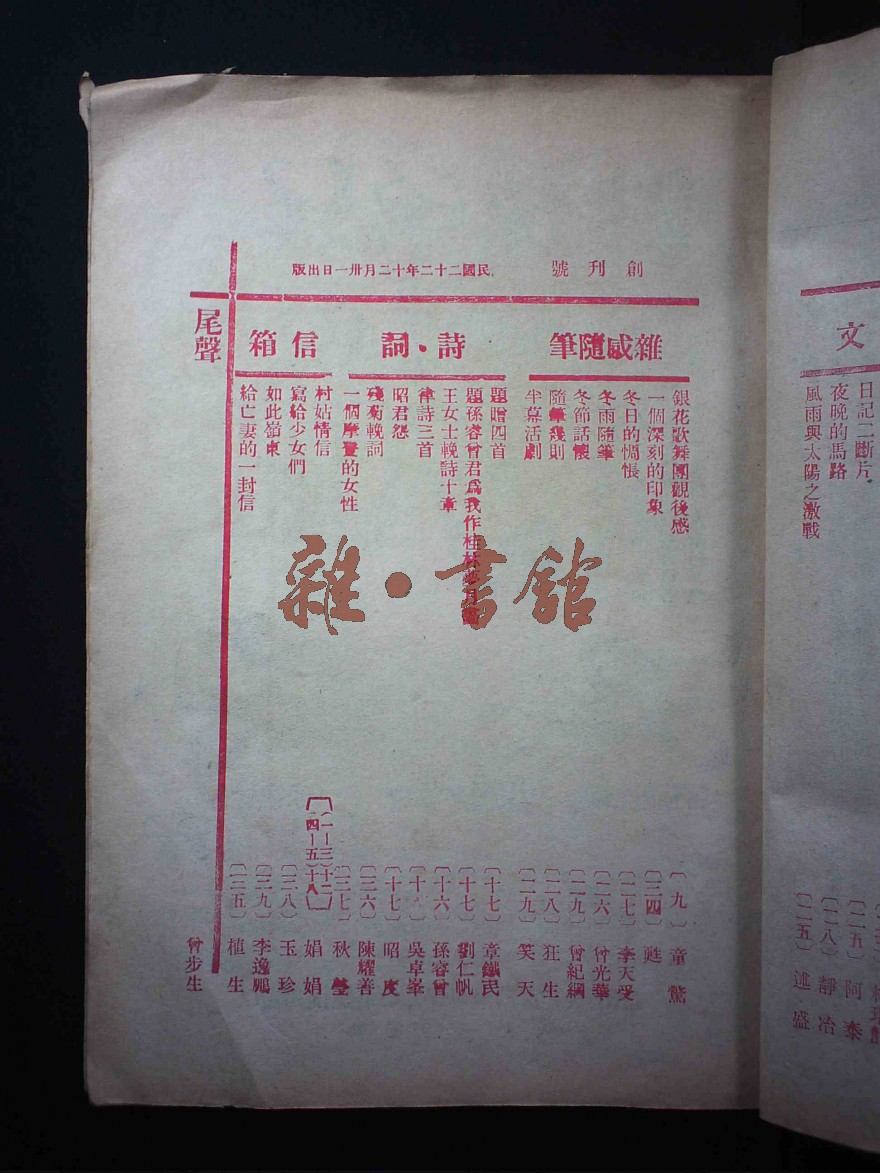 文
日記二斷片
夜晚的馬路
風雨與太陽之激戰
〔二五〕 阿泰
〔二八〕 靜冶
〔二五〕 述盛
創刊號
民國二十二年十二月卅一日出版
雜感隨筆
銀花歌舞團觀後感 〔九〕 童驚
一個深刻的印象 〔三四〕 甦
冬日的惆悵 〔二七〕 李天受
冬雨隨筆 〔二六〕 曾光華
冬節話懷 〔二九〕 曾紀綱
隨筆幾則 〔二八〕 狂生
半幕活劇 〔二九〕 笑天
詩・詞
題贈四首 〔十七〕 章鐵民
題孫睿曾君爲我作桂林 〔十七〕 劉仁帆
王女士輓詩十章 〔十六〕 孫睿曾
律詩三首 吳卓峯
昭君怨 〔十七〕 昭度
殘菊輓詞 〔三六〕 陳耀善
一個摩登的女性 〔三七〕 秋瑩
信箱
村姑情信 〔(一—三)十二 (四—五)十八〕 娟娟
寫給少女們 〔二八〕 玉珍
如此嶺東 〔三九〕 李逸鵬
給亡妻的一封信 〔三五〕 植生
尾聲 曾步生
雜・書館